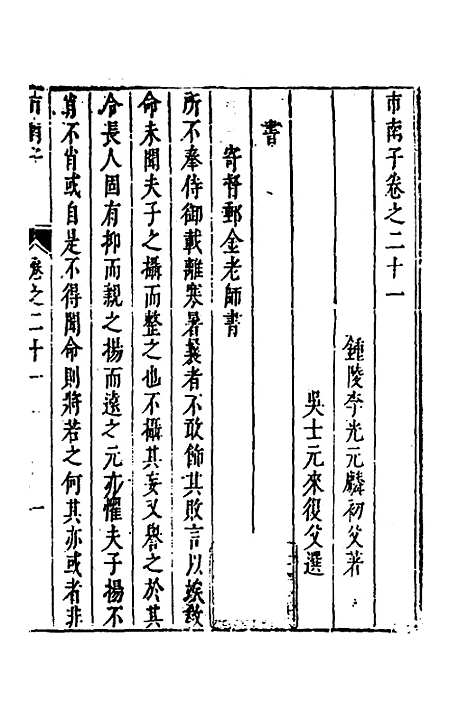 市南子卷之二十一
鍾陵李光元麟初父著
吳士元來復父選
書
寄督郵金老師書
所不奉侍御載離寒暑曩者不敢飾其敗言以俟教
命未聞夫子之攝而整之也不攝其妄又譽之於其
合長人固有抑而親之揚而遠之元亦懼夫子揚不
肖不肖或自是不得聞命則將若之何其亦或者非
市南子
卷之二十一
一